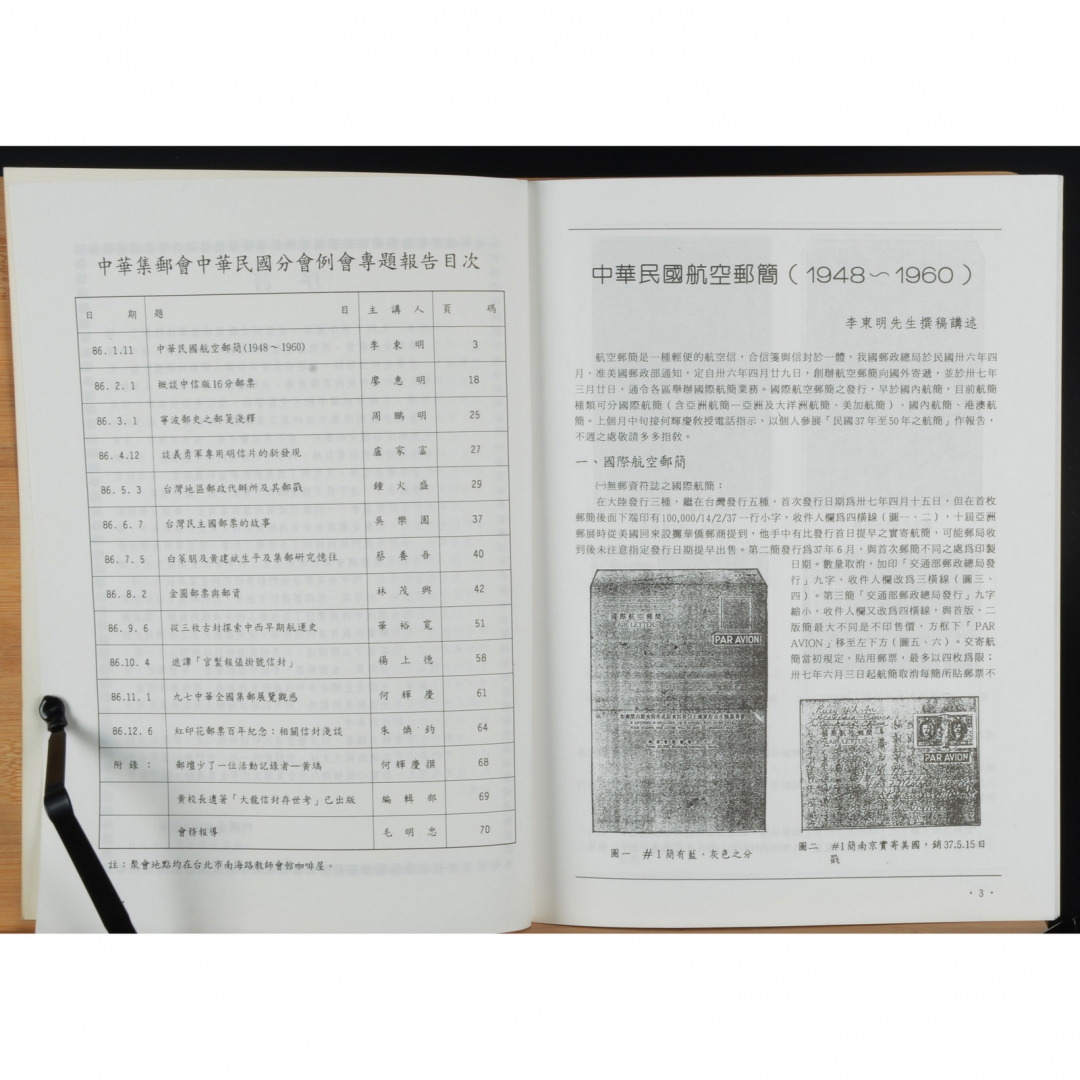 中華集郵會中華民國分會例會專題報告目次
日 期 題 目 主 講 人 頁 碼
86. 1.11 中華民國航空郵簡(1948～1960) 李 東 明 3
86. 2. 1 概談中信版16分郵票 廖 惠 明 18
86. 3. 1 寧波郵史之郵箋淺釋 周 鵬 明 25
86. 4.12 談義勇軍專用明信片的新發現 盧 家 富 27
86. 5. 3 台灣地區郵政代辦所及其郵戳 鍾 火 盛 29
86. 6. 7 台灣民主國郵票的故事 吳 樂 園 37
86. 7. 5 白萊朋及黃建斌生平及集郵研究憶往 蔡 養 吾 40
86. 8. 2 金圓郵票與郵資 林 茂 興 42
86. 9. 6 從三枚古封探索中西早期航運史 華 裕 寬 51
86.10. 4 遮譚「官製報值掛號信封」 楊 上 德 58
86.11. 1 九七中華全國集郵展覽觀感 何 輝 慶 61
86.12. 6 紅印花郵票百年紀念：相關信封淺談 朱 煥 鈞 64
附 錄 ： 郵壇少了一位活動記錄者—黃瑀 何輝慶撰 68
黃校長遺著「大龍信封存世考」已出版 編 輯 部 69
會務報導 毛 明 忠 70
註：聚會地點均在台北市南海路教師會館咖啡屋。
中華民國航空郵簡（1948～1960）
李東明先生撰稿講述
航空郵簡是一種輕便的航空信，合信箋與信封於一體，我國郵政總局於民國卅六年四
月，准美國郵政部通知，定自卅六年四月廿九日，創辦航空郵簡向國外寄遞，並於卅七年
三月廿日，通令各區舉辦國際航簡業務。國際航空郵簡之發行，早於國內航簡，目前航簡
種類可分國際航簡（含亞洲航簡—亞洲及大洋洲航簡、美加航簡）、國內航簡、港澳航
簡。上個月中旬接何輝慶教授電話指示，以個人參展「民國37年至50年之航簡」作報告，
不週之處敬請多多指教。
一、國際航空郵簡
㈠無郵資符誌之國際航簡：
在大陸發行三種，繼在台灣發行五種，首次發行日期爲卅七年四月十五日，但在首枚
郵簡後面下端印有100,000/14/2/37一行小字，收件人欄爲四橫線（圖一、二），十屆亞洲
郵展時從美國回來設攤華僑郵商提到，他手中有比發行首日提早之實寄航簡，可能郵局收
到後未注意指定發行日期提早出售。第二簡發行爲37年6月，與首次郵簡不同之處爲印製
日期。數量取消，加印「交通部郵政總局發
行」九字，收件人欄改爲三橫線（圖三、
四）。第三簡「交通部郵政總局發行」九字
縮小，收件人欄又改爲四橫線，與首版、二
版簡最大不同是不印售價，方框下「PAR
AVION」移至左下方（圖五、六）。交寄航
簡當初規定，貼用郵票，最多以四枚爲限；
卅七年六月三日起航簡取消每簡所貼郵票不
國際航空郵簡
AIR LETTER
PAR AVION
圖一 #1簡有藍、灰色之分
國際航空郵簡
AIR LETTER
PAR AVION
圖二 #1簡南京實寄美國，銷37.5.15日
戳
· 3 ·